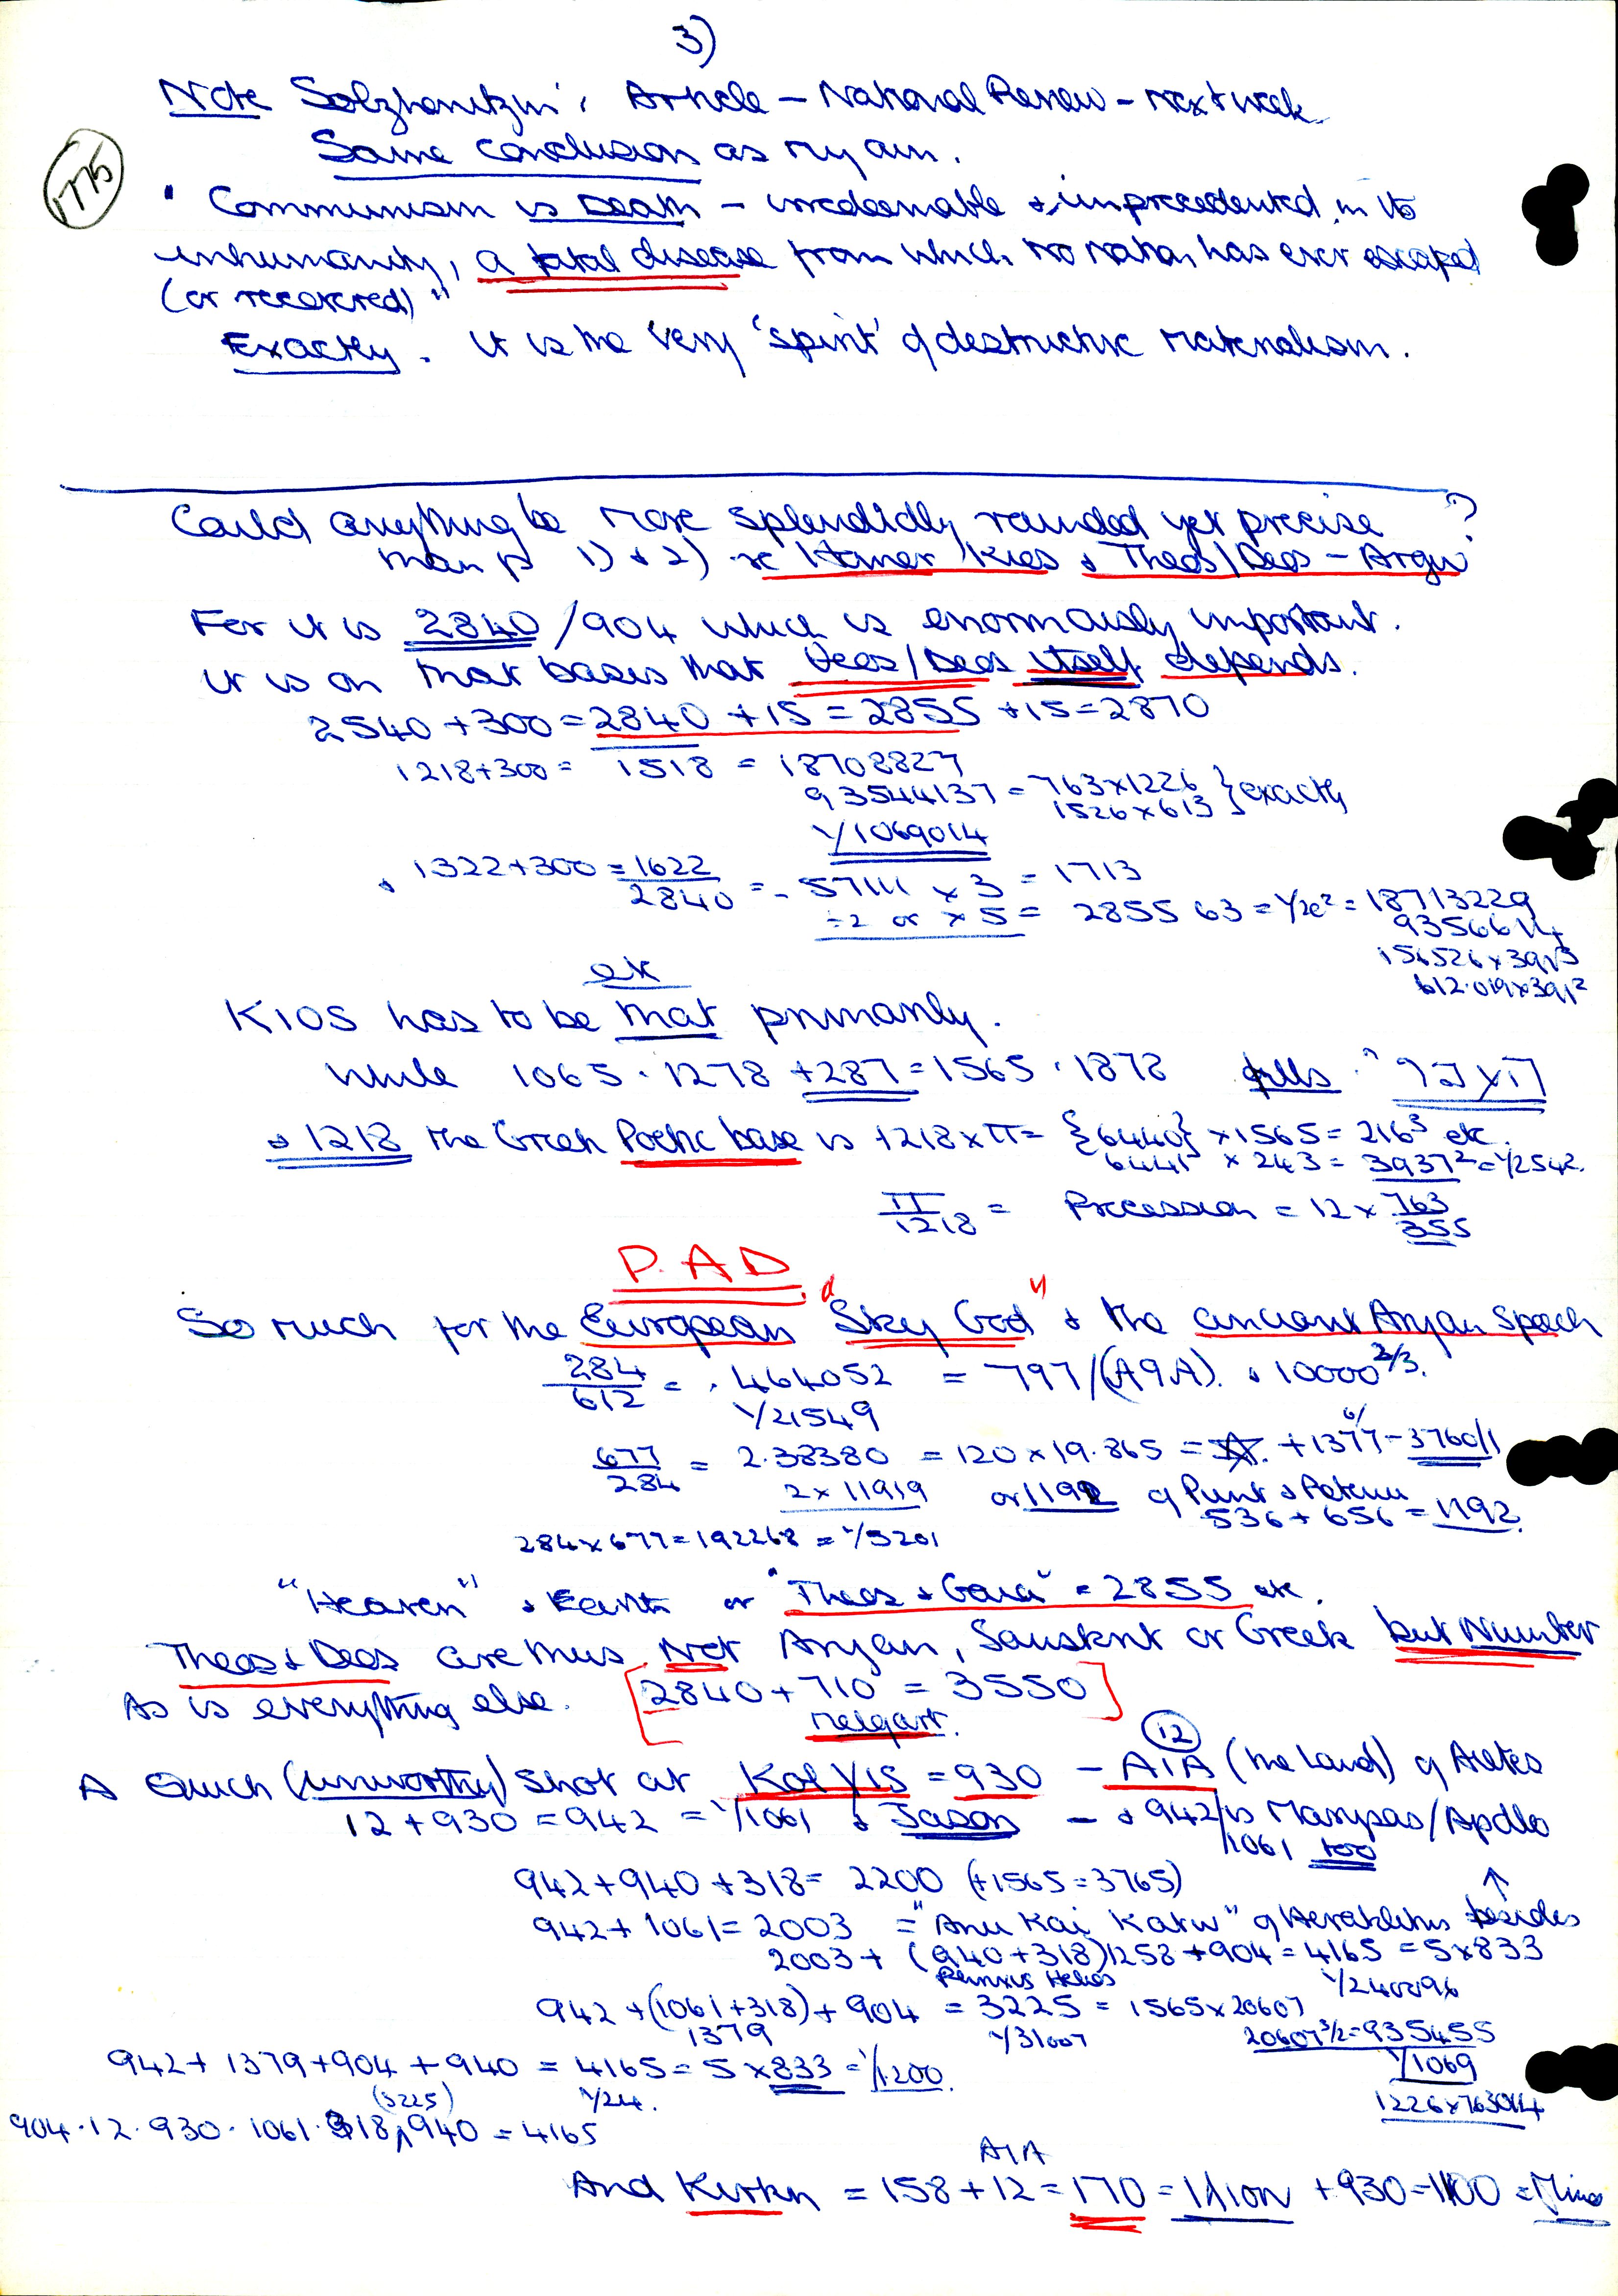 3)
Note Solzhenitzin's Article – National Review – next week
Same conclusion as my own.
1775
" Communism is Death – irredeemable & unprecedented in its
inhumanity, a fatal disease from which no nation has ever escaped
(or recovered) "
Exactly. It is the very 'spirit' of destructive materialism.
Could anything be more splendidly rounded yet precise ?
than p 1) & 2) re Homer/Kios & Theos/Deos – Argw
For it is 2840/904 which is enormously important.
It is on that basis that Theos/Deos itself depends.
2540 + 300 = 2840 + 15 = 2855 + 15 = 2870
1218 + 300 = 1518 = 18708827
93544137 = 763 x 1226 } exactly
1526 x 613
1/1069014
& 1322 + 300 = 1622 / 2840 = .57111 x 3 = 1713
÷2 or x 5 = 2855 63 = 1/2e² = 18713229
9356614
156526 x 391³
612.019 x 391²
etc
KIOS has to be that primarily.
while 1065 . 1278 + 287 = 1565 . 1878
& 1218 the Greek Poetic base is 1218 x π = {6440} x 1565 = 216³ etc.
6441 x 243 = 3937² = 1/2542.
π/1218 = Precession = 12 x 763/355
P. A D.
So much for the European "Sky God" & the ancient Aryan Speech
284/612 = .464052 = 797/(A9A). & 10000^2/3.
1/21549
677/284 = 2.38380 = 120 x 19.865 = + 1377 – 3760/1
2 x 11919 or 1192 of Punt &
536 + 656 = 1192.
284 x 677 = 192268 = 1/5201
"Heaven" & Earth or "Theos & Gaia" = 2855 etc.
Theos & Deos are thus Not Aryan, Sanskrit or Greek but Number
As is everything else. [2840 + 710 = 3550]
Melqart.
12
A Quick (unworthy) shot at KolXIS = 930 – AIA (the Land) of Aietes
12 + 930 = 942 = 1/1061 & Jason – & 942/is Marsyas/Apollo
1061 too
942 + 940 + 318 = 2200 (+1565 = 3765)
942 + 1061 = 2003 = "Anw Kai Katw" of Heraklitus besides
2003 + (940 + 318) 1258 + 904 = 4165 = 5 x 833
Helios 1/240096
942 + (1061 + 318) + 904 = 3225 = 1565 x 20607
1379 1/31007 20607^3/2 = 935455
942 + 1379 + 904 + 940 = 4165 = 5 x 833 = 1/1200. 1/1069
(3225) 1/24. 1226 x 763014
904 . 12 . 930 . 1061 . 318, 940 = 4165
AIA
And Kirkn = 158 + 12 = 170 = + 930 = 1100 =